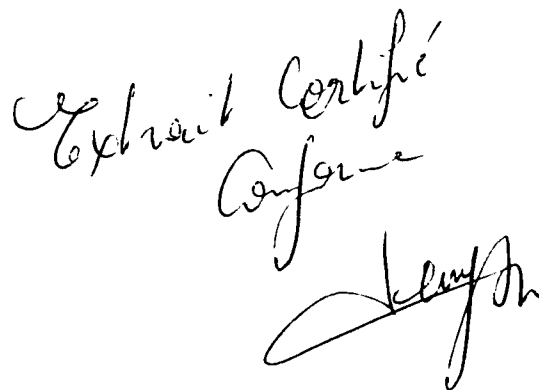 Extrait Certifié
Conforme